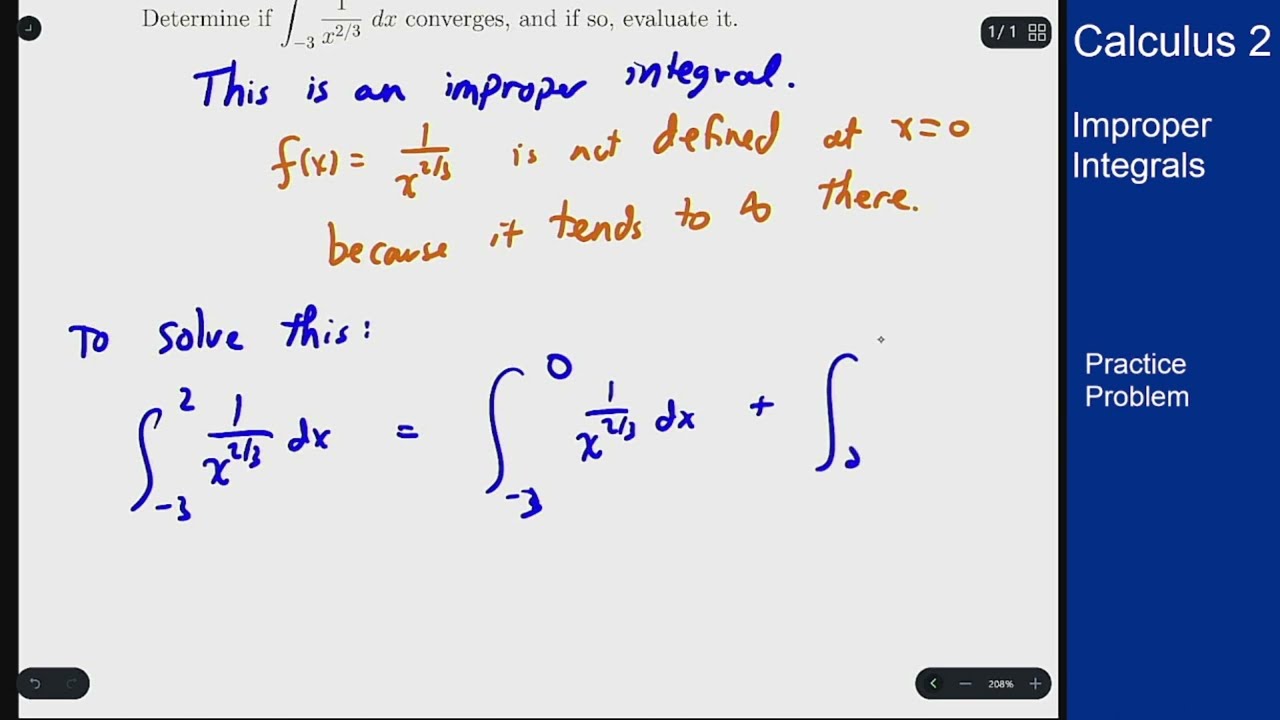 Determine if ∫_{-3} 1/x^{2/3} dx converges, and if so, evaluate it.
1/1
This is an improper integral.
f(x) = 1/x^{2/3} is not defined at x=0
because it tends to ∞ there.
To solve this:
∫_{-3}^{2} 1/x^{2/3} dx = ∫_{-3}^{0} 1/x^{2/3} dx + ∫_{0}
208%
Calculus 2
Improper
Integrals
Practice
Problem